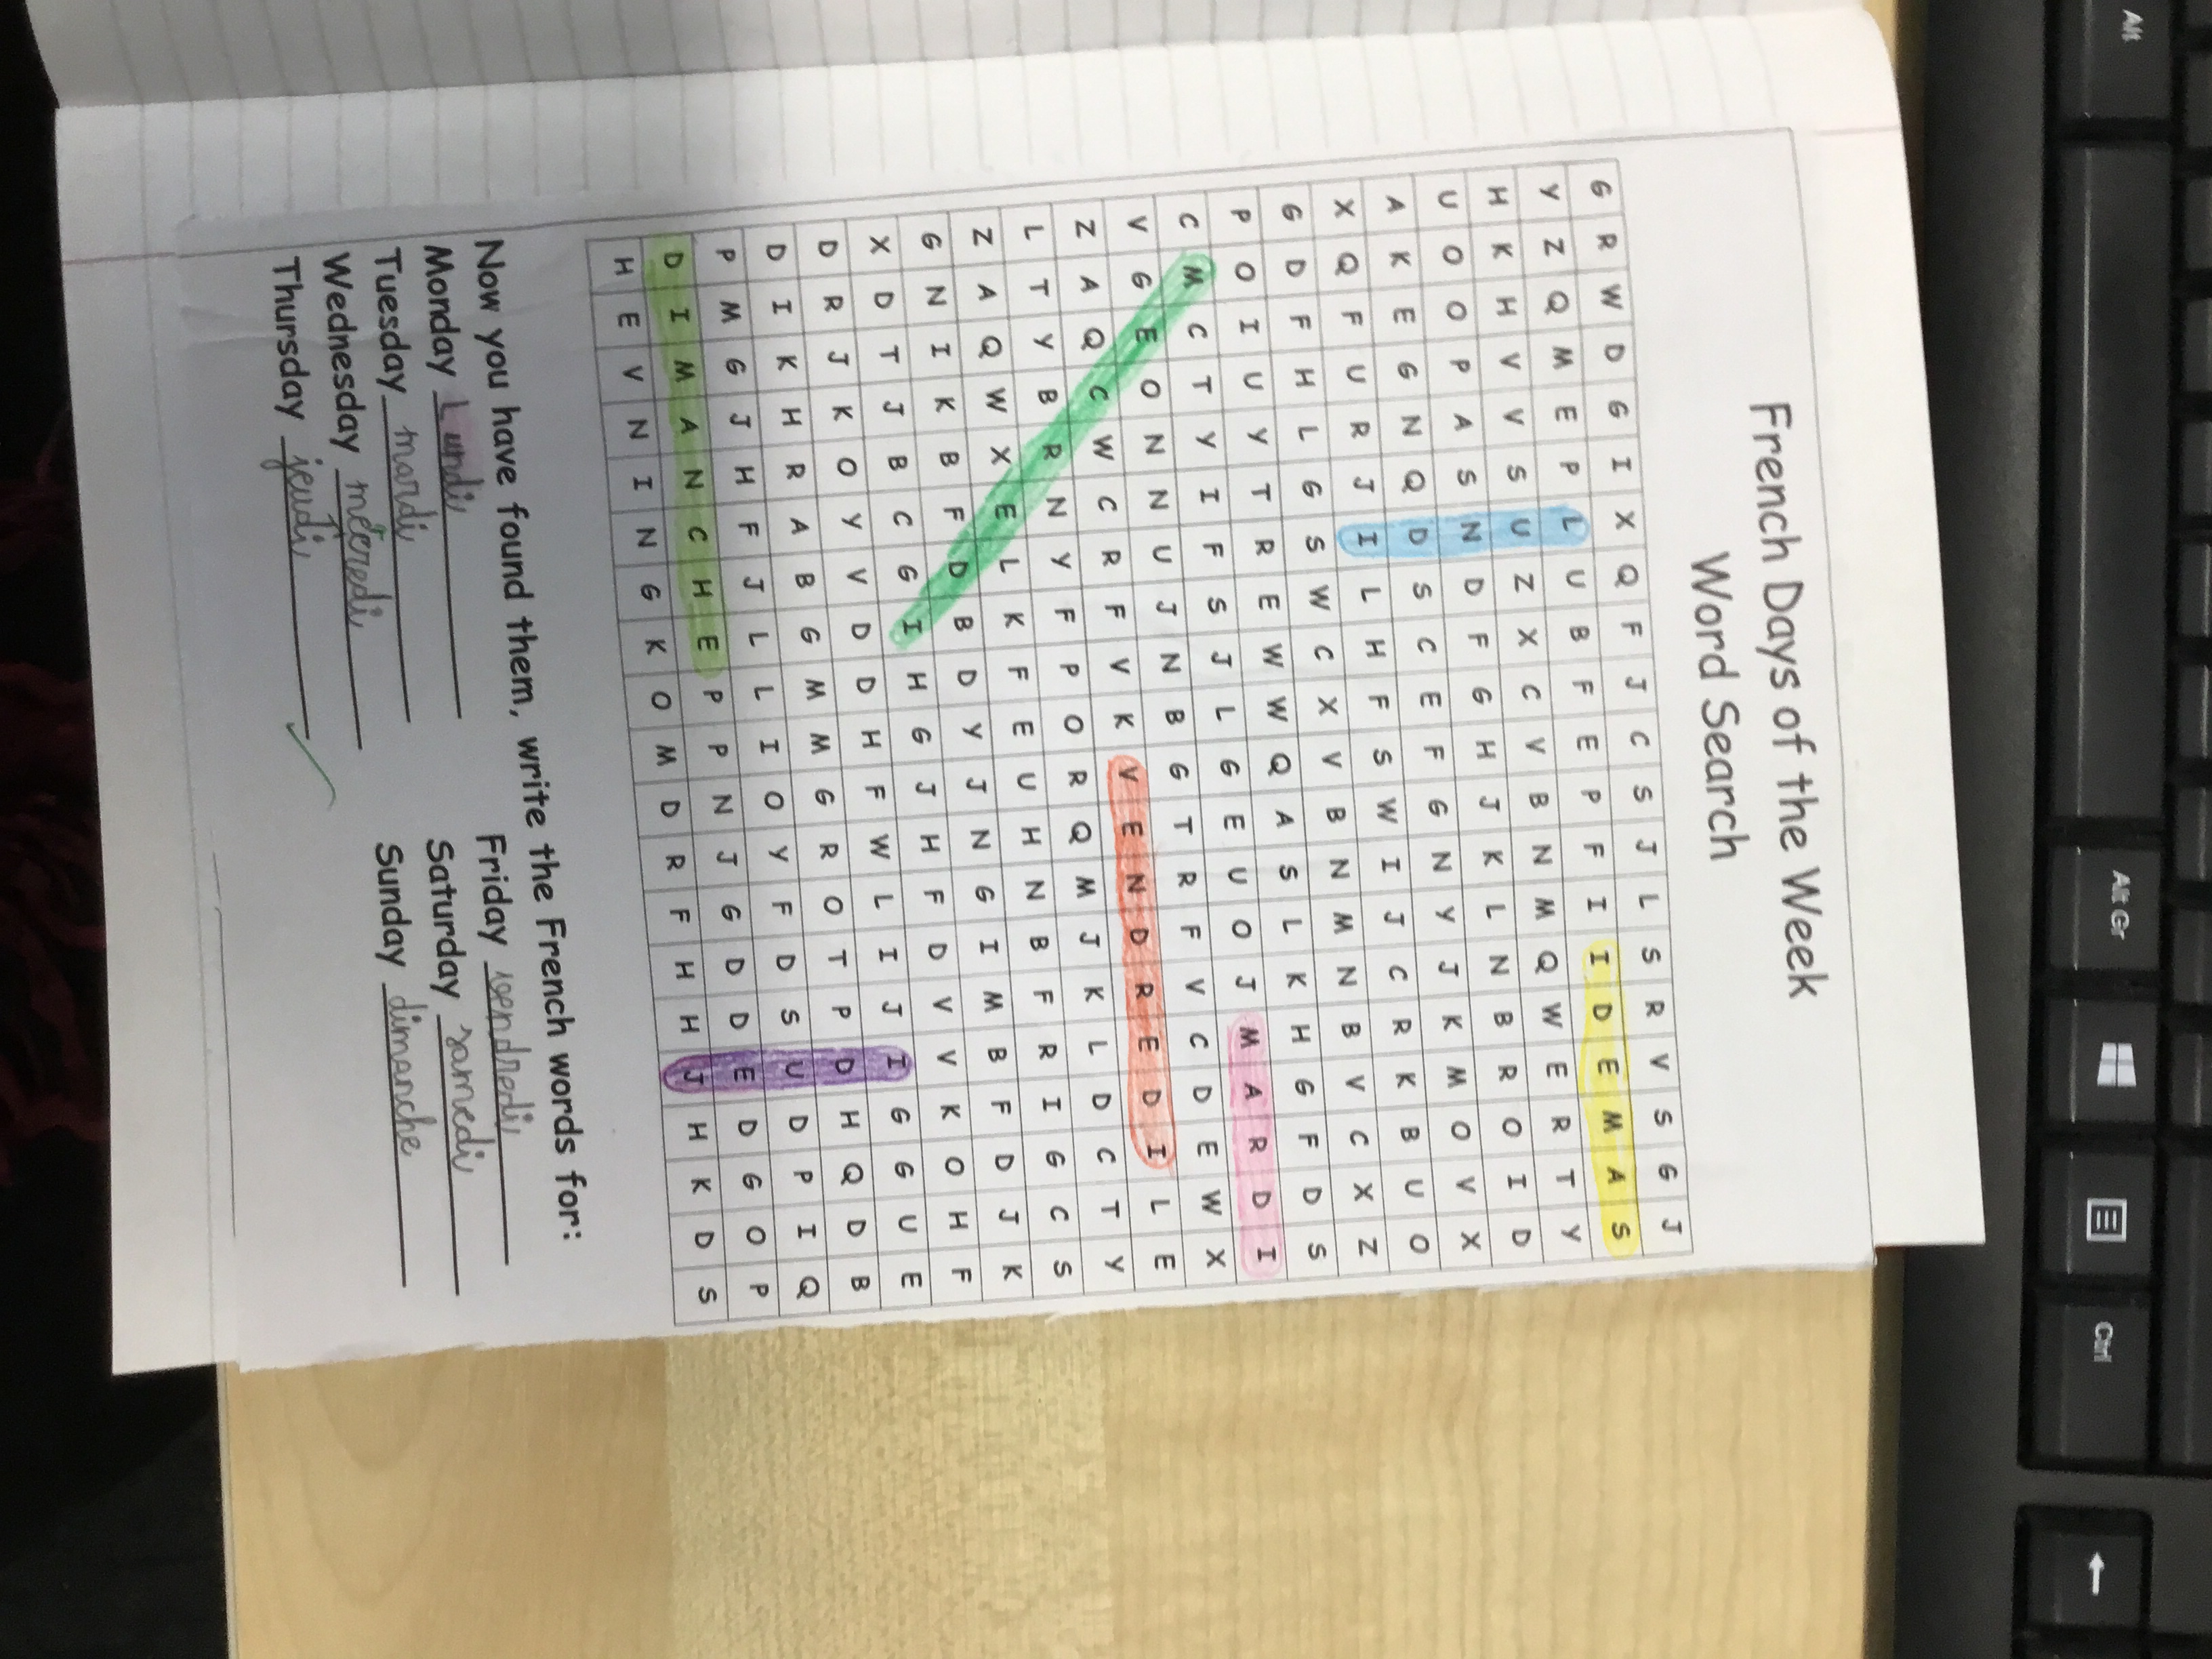 French Days of the Week
Word Search
G R W D G I X Q F J C S J L S R V S G J
Y Z Q M E P L U B F E P F I I D E M A S
H K H V V S U Z X C V B N M Q W E R T Y
U O O P A S N D F G H J K L N B R O I D
A K E G N Q D S C E F G N Y J K M O V X
X Q F U R J I L H F S W I J C R K B U O
G D F H L G S W C X V B N M N B V C X Z
P O I U Y T R E W W Q A S L K H G F D S
C M C T Y I F S J L G E U O J M A R D I
V G E O N N U J N B G T R F V C D E W X
Z A Q C W C R F V K V E N D R E D I L E
L T Y B R N Y F P O R Q M J K L D C T Y
Z A Q W X E L K F E U H N B F R I G C S
G N I K B F D B D Y J N G I M B F D J K
X D T J B C G I H G J H F D V V K O H F
D R J K O Y V D D H F W L I J I G G U E
D I K H R A B G M M G R O T P D H Q D B
P M G J H F J L L I O Y F D S U D P I Q
D I M A N C H E P P N J G D D E D G O P
H E V N I N G K O M D R F H H J H K D S
Now you have found them, write the French words for:
Monday Lundi
Tuesday mardi
Wednesday mercredi
Thursday jeudi
Friday vendredi
Saturday samedi
Sunday dimanche
Alt
Alt Gr
Ctrl